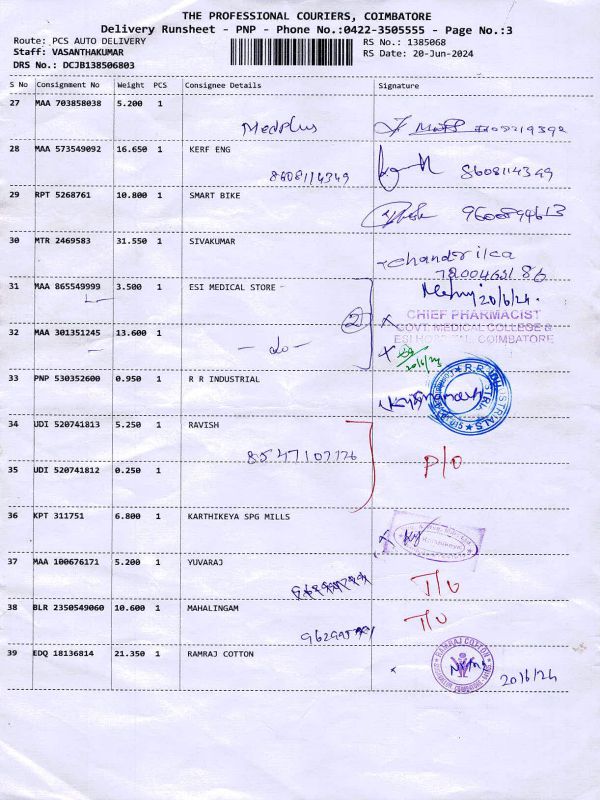 THE PROFESSIONAL COURIERS, COIMBATORE
Delivery Runsheet - PNP - Phone No.:0422-3505555 - Page No.:3
Route: PCS AUTO DELIVERY RS No.: 1385068
Staff: VASANTHAKUMAR RS Date: 20-Jun-2024
DRS No.: DCJB138506803
S No Consignment No Weight PCS Consignee Details Signature
27 MAA 703858038 5.200 1
Medplus
28 MAA 573549092 16.650 1 KERF ENG
8608114349 8608114349
29 RPT 5268761 10.800 1 SMART BIKE
30 MTR 2469583 31.550 1 SIVAKUMAR
31 MAA 865549999 3.500 1 ESI MEDICAL STORE -
20/6/24.
CHIEF PHARMACIST
GOVT. MEDICAL COLLEGE &
ESI HOSPITAL, COIMBATORE
32 MAA 301351245 13.600 1
2
- do -
33 PNP 530352600 0.950 1 R R INDUSTRIAL
34 UDI 520741813 5.250 1 RAVISH
P/O
35 UDI 520741812 0.250 1
36 KPT 311751 6.800 1 KARTHIKEYA SPG MILLS
37 MAA 100676171 5.200 1 YUVARAJ
38 BLR 2350549060 10.600 1 MAHALINGAM
39 EDQ 18136814 21.350 1 RAMRAJ COTTON
RAMRAJ COTTON
20/6/24